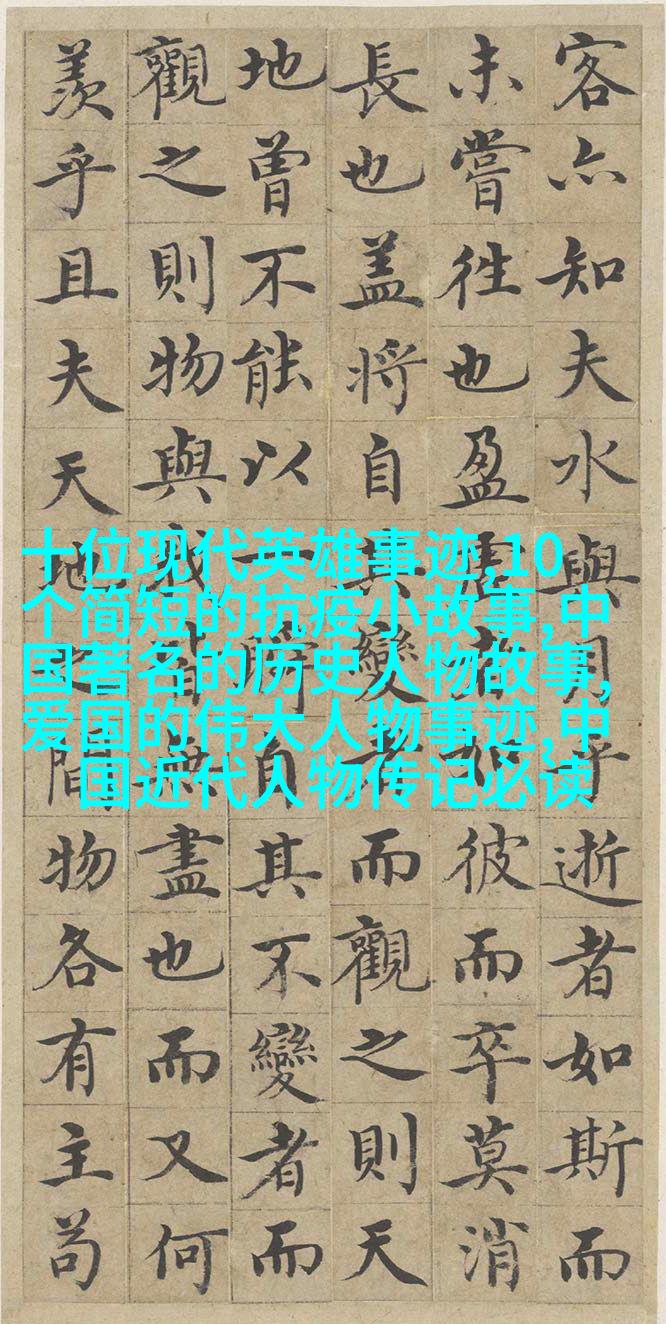 客亦知夫水與月乎逝者如斯而
未嘗往也盈虛者如彼而卒莫消
長也盖將自其變者而觀之則天
地曾不能以一瞬自其不變者而
觀之則物與我皆無盡也而又何
羨乎且夫天地之間物各有主苟
十位现代英雄事迹,10
个简短的抗疫小故事,中
国著名的历史人物故事,
爱国的伟大人物事迹,中
国近代人物传记必读